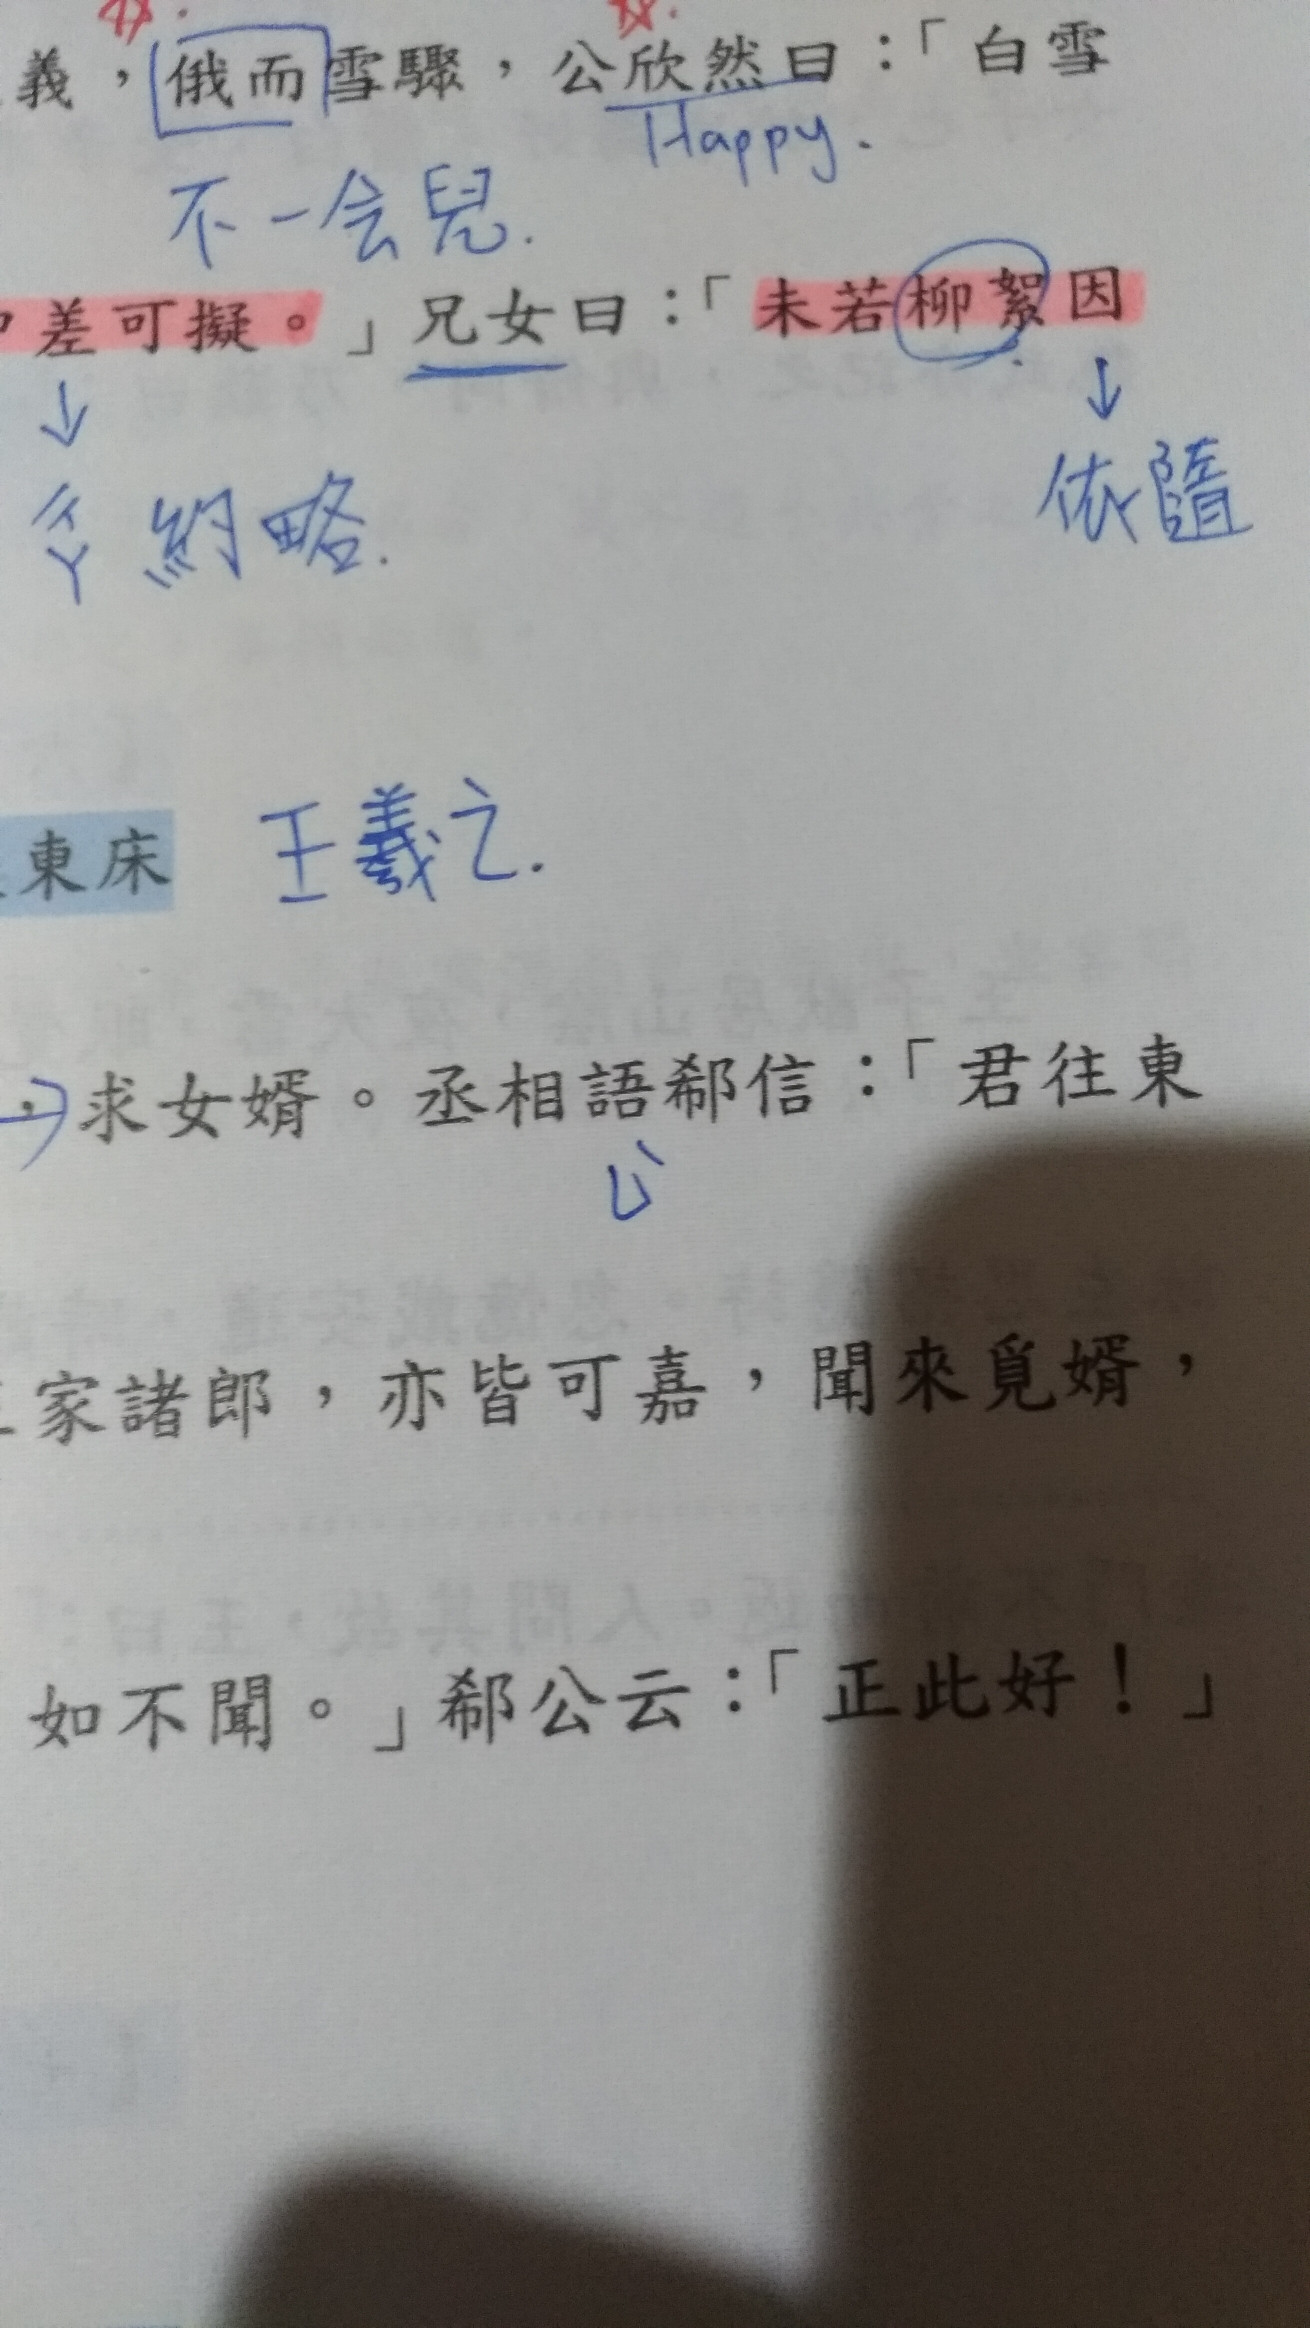 義，俄而雪驟，公欣然曰：「白雪
Happy.
不一会兒.
差可擬。」兄女曰：「未若柳絮因
ㄔㄚ 約略.
依隨
東床 王羲之.
求女婿。丞相語郗信：「君往東
ㄩˋ
家諸郎，亦皆可嘉，聞來覓婿，
如不聞。」郗公云：「正此好！」